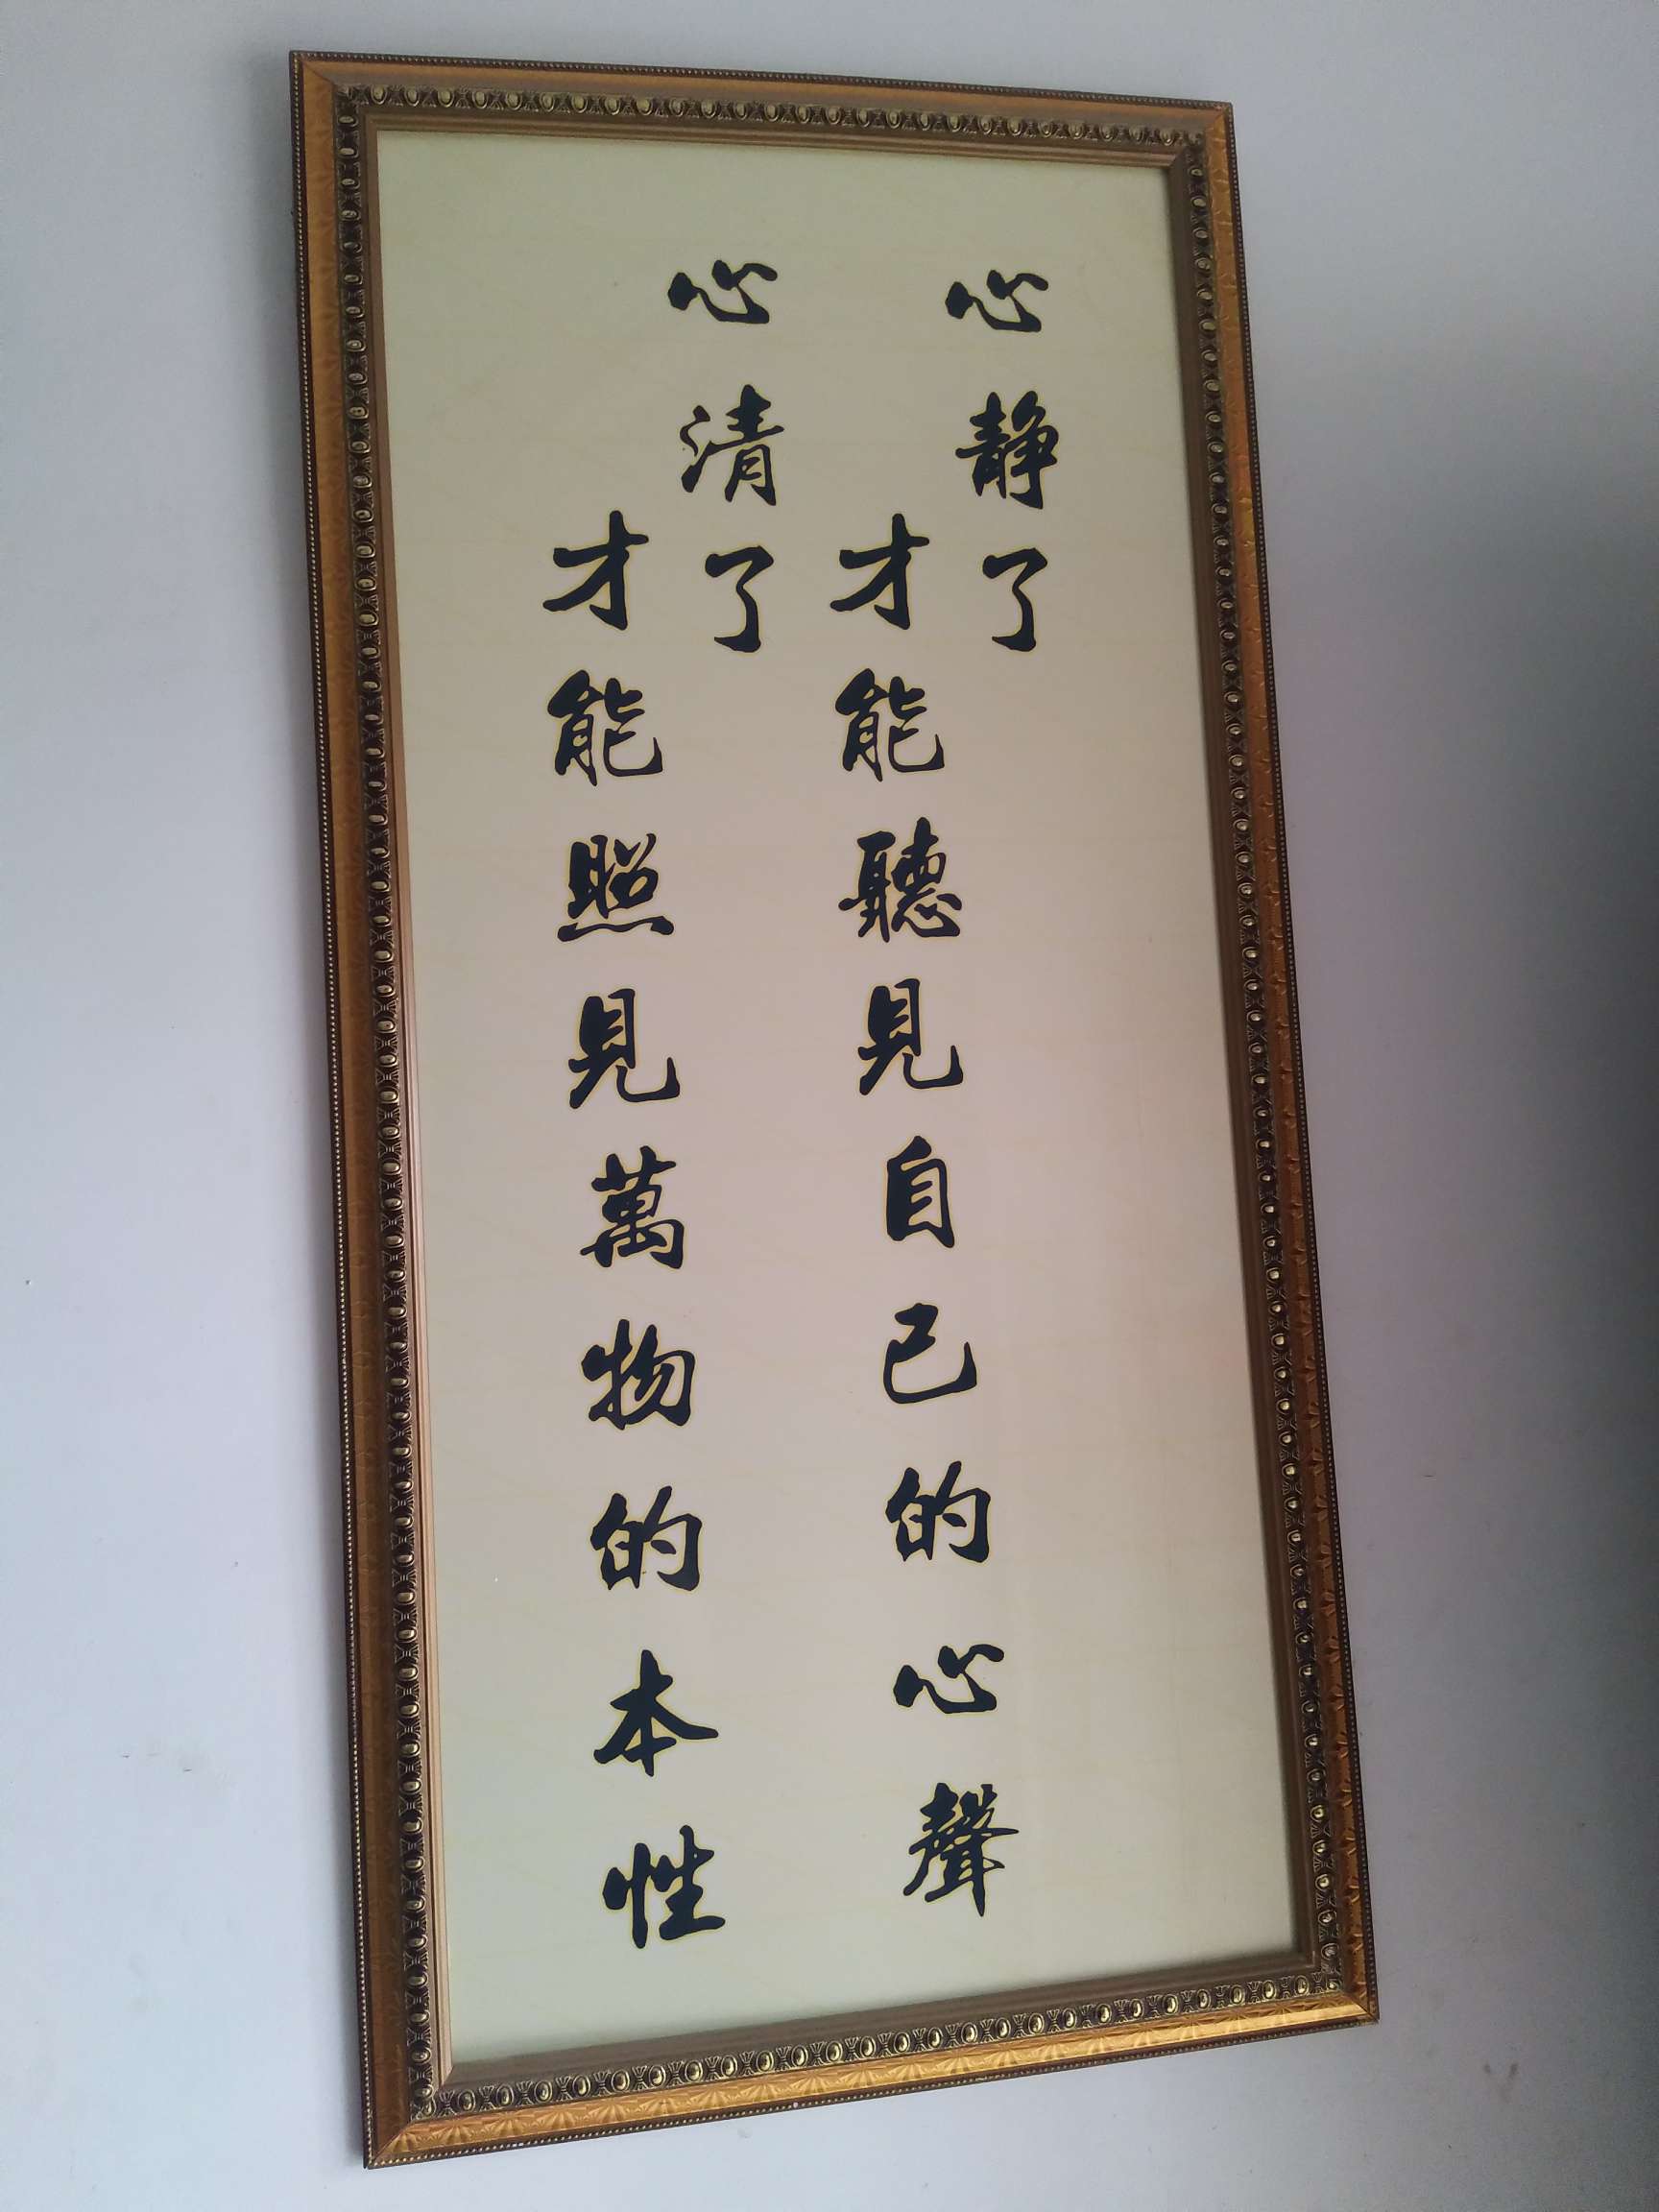 心静了
才能聽見自己的心聲
心清了
才能照見萬物的本性